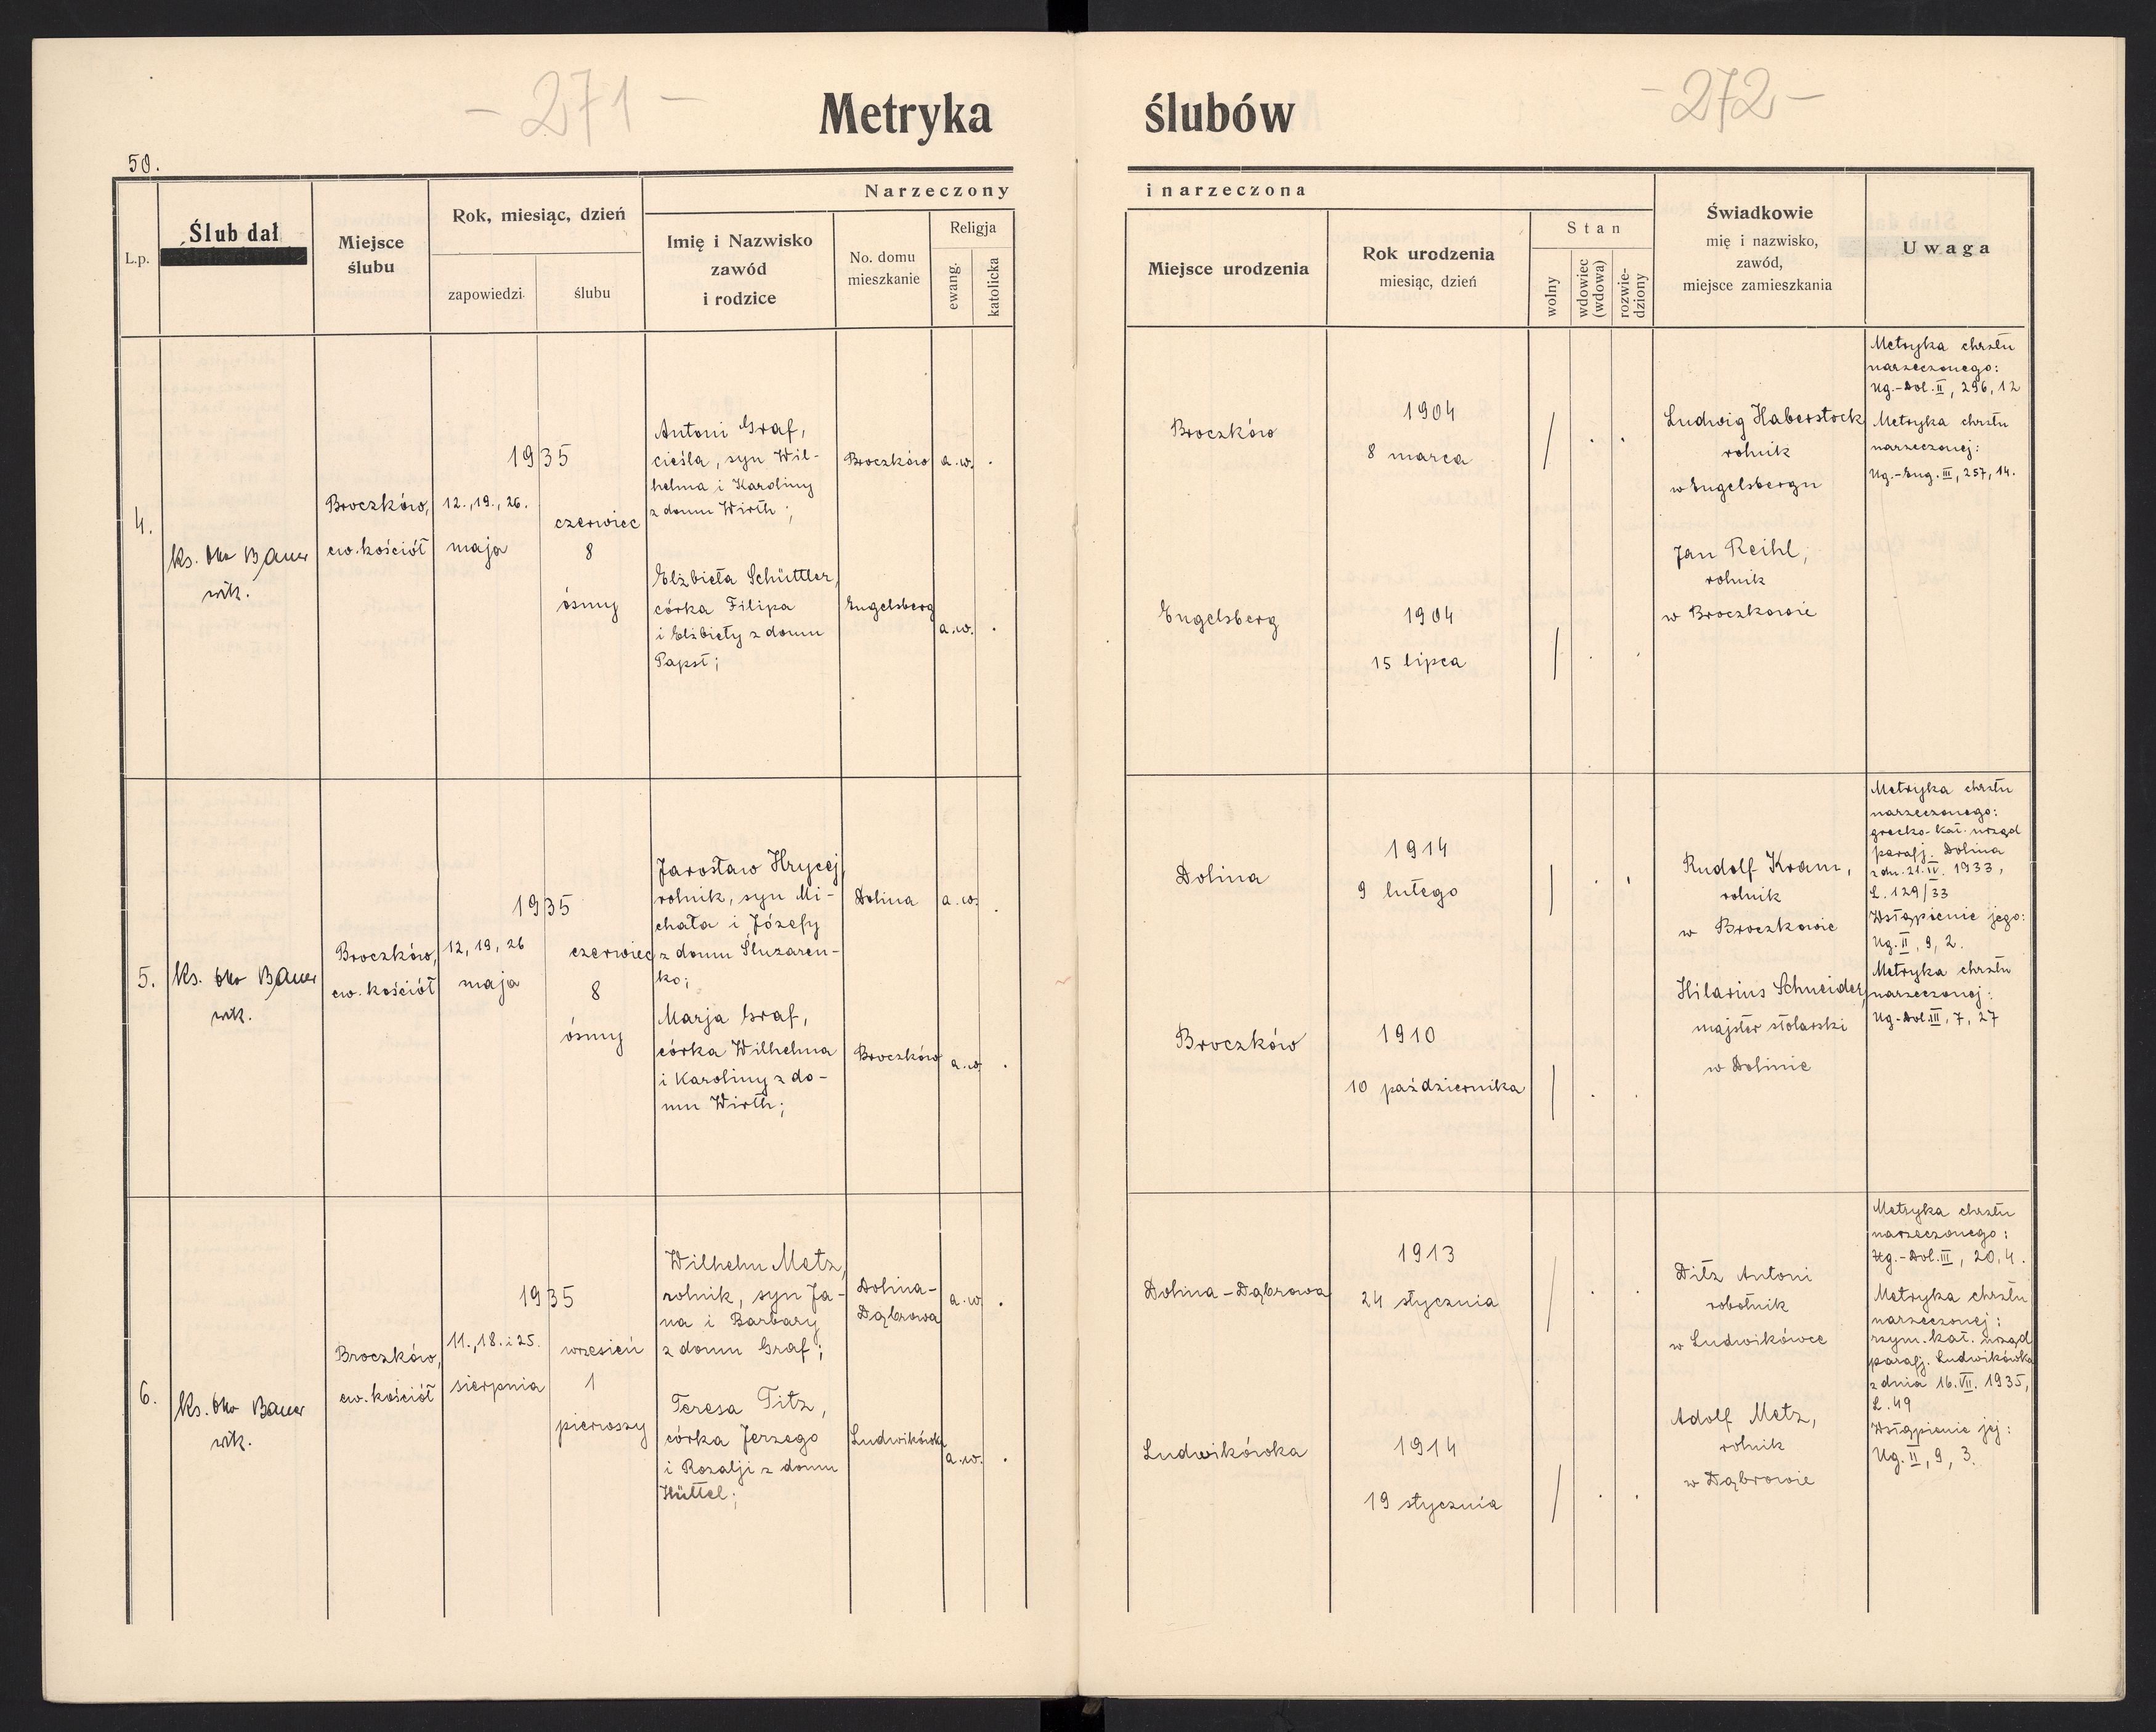 - 271 -
Metryka
50.
L.p.
Ślub dał
Miejsce
ślubu
Rok, miesiąc, dzień
zapowiedzi
ślubu
Narzeczony
Imię i Nazwisko
zawód
i rodzice
No. domu
mieszkanie
Religja
ewang.
katolicka
4.
ks. Otto Bauer
wik.
Broczków,
ew. kościół
1935
12., 19., 26.
maja
czerwiec
8
ósmy
Antoni Graf,
cieśla, syn Wil-
helma i Karoliny
z domu Wirth;
Broczków
a.w.
.
Elżbieta Schüttler,
córka Filipa
i Elżbiety z domu
Papst;
Engelsberg
a.w.
.
5.
ks. Otto Bauer
wik.
Broczków,
ew. kościół
1935
12, 19, 26
maja
czerwiec
8
ósmy
Jarosław Hrycej,
rolnik, syn Mi-
chała i Józefy
z domu Śluzaren-
ko;
Dolina
a.w.
.
Marja Graf,
córka Wilhelma
i Karoliny z do-
mu Wirth;
Broczków
a.w.
.
6.
ks. Otto Bauer
wik.
Broczków,
ew. kościół
1935
11., 18. i 25.
sierpnia
wrzesień
1
pierwszy
Wilhelm Metz,
rolnik, syn Ja-
na i Barbary
z domu Graf;
Dolina-
Dąbrowa
a.w.
.
Teresa Titz,
córka Jerzego
i Rozalji z domu
Hüttel;
Ludwikówka
a.w.
.
- 272 -
ślubów
i narzeczona
Miejsce urodzenia
Rok urodzenia
miesiąc, dzień
Stan
wolny
wdowiec
(wdowa)
rozwie-
dziony
Świadkowie
mię i nazwisko,
zawód,
miejsce zamieszkania
Uwaga
Broczków
1904
8 marca
/ . .
Engelsberg
1904
15 lipca
/ . .
Ludwig Haberstock
rolnik
w Engelsbergu
Jan Reihl,
rolnik
w Broczkowie
Metryka chrztu
narzeczonego:
Ug.-Dol. II, 296, 12
Metryka chrztu
narzeczonej:
Ug.-Eng. III, 257, 14.
Dolina
1914
9 lutego
/ . .
Broczków
1910
10 października
/ . .
Rudolf Kram,
rolnik
w Broczkowie
Hilarius Schneider,
majster stolarski
w Dolinie
Metryka chrztu
narzeczonego:
grecko-kat. urząd
parafj. Dolina
z dn. 21. IV. 1933,
L. 129/33
Wstąpienie jego:
Ug. II, 9, 2.
Metryka chrztu
narzeczonej:
Ug.-Dol. III, 7, 27
Dolina-Dąbrowa
1913
24 stycznia
/ . .
Ludwikówka
1914
19 stycznia
/ . .
Ditz Antoni
robotnik
w Ludwikówce
Adolf Metz,
rolnik
w Dąbrowie
Metryka chrztu
narzeczonego:
Ug.-Dol. III, 20, 4.
Metryka chrztu
narzeczonej:
rzym.-kat. urząd
parafj. Ludwikówka
z dnia 16. VII. 1935,
L. 49
Wstąpienie jej:
Ug. II, 9, 3.